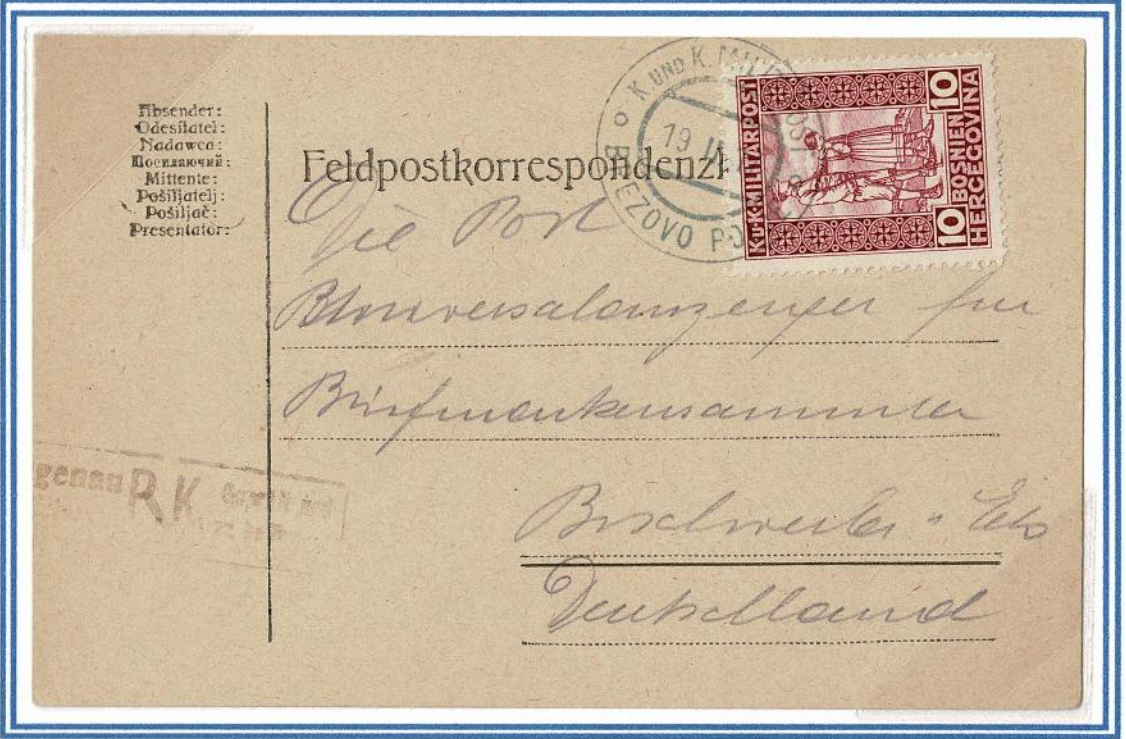 Absender:
Odesílatel:
Nadawca:
Посилаючий:
Mittente:
Pošiljatelj:
Pošiljač:
Presentator:
Feldpostkorrespondenzk
K UND K. MILIT POST
19 II
BREZOVO PO
K.u.K. MILITÄRPOST
10 BOSNIEN 10
HERCEGOVINA
Die Post
für
Briefmarkensammler
Bischweiler Els
Deutschland
genau R.K.